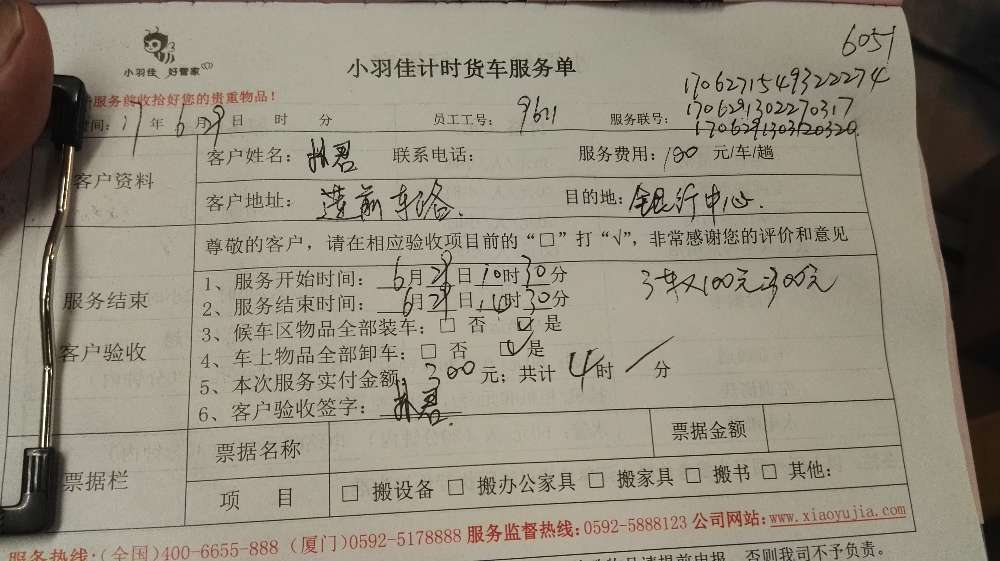 6051
小羽佳 好管家
小羽佳计时货车服务单
服务前收拾好您的贵重物品！
170627154932 22274
1706291302270317
170629130312 0320
时间：17年6月29日 时 分 员工工号：9621 服务联号：
客户资料
客户姓名：林君 联系电话： 服务费用：100元/车/趟
客户地址：莲前东路. 目的地：银行中心.
尊敬的客户，请在相应验收项目前的“□”打“√”，非常感谢您的评价和意见
服务结束
客户验收
1、服务开始时间：6月29日10时30分
3车×100元=300元
2、服务结束时间：6月29日14时30分
3、候车区物品全部装车：□ 否 □ 是
4、车上物品全部卸车：□ 否 □ 是
5、本次服务实付金额：300元；共计4时/分
6、客户验收签字：林君.
票据栏
票据名称 票据金额
项 目 □ 搬设备 □ 搬办公家具 □ 搬家具 □ 搬书 □ 其他：
服务热线：(全国)400-6655-888 (厦门)0592-5178888 服务监督热线：0592-5888123 公司网站：www.xiaoyujia.com
请提前申报，否则我司不予负责。